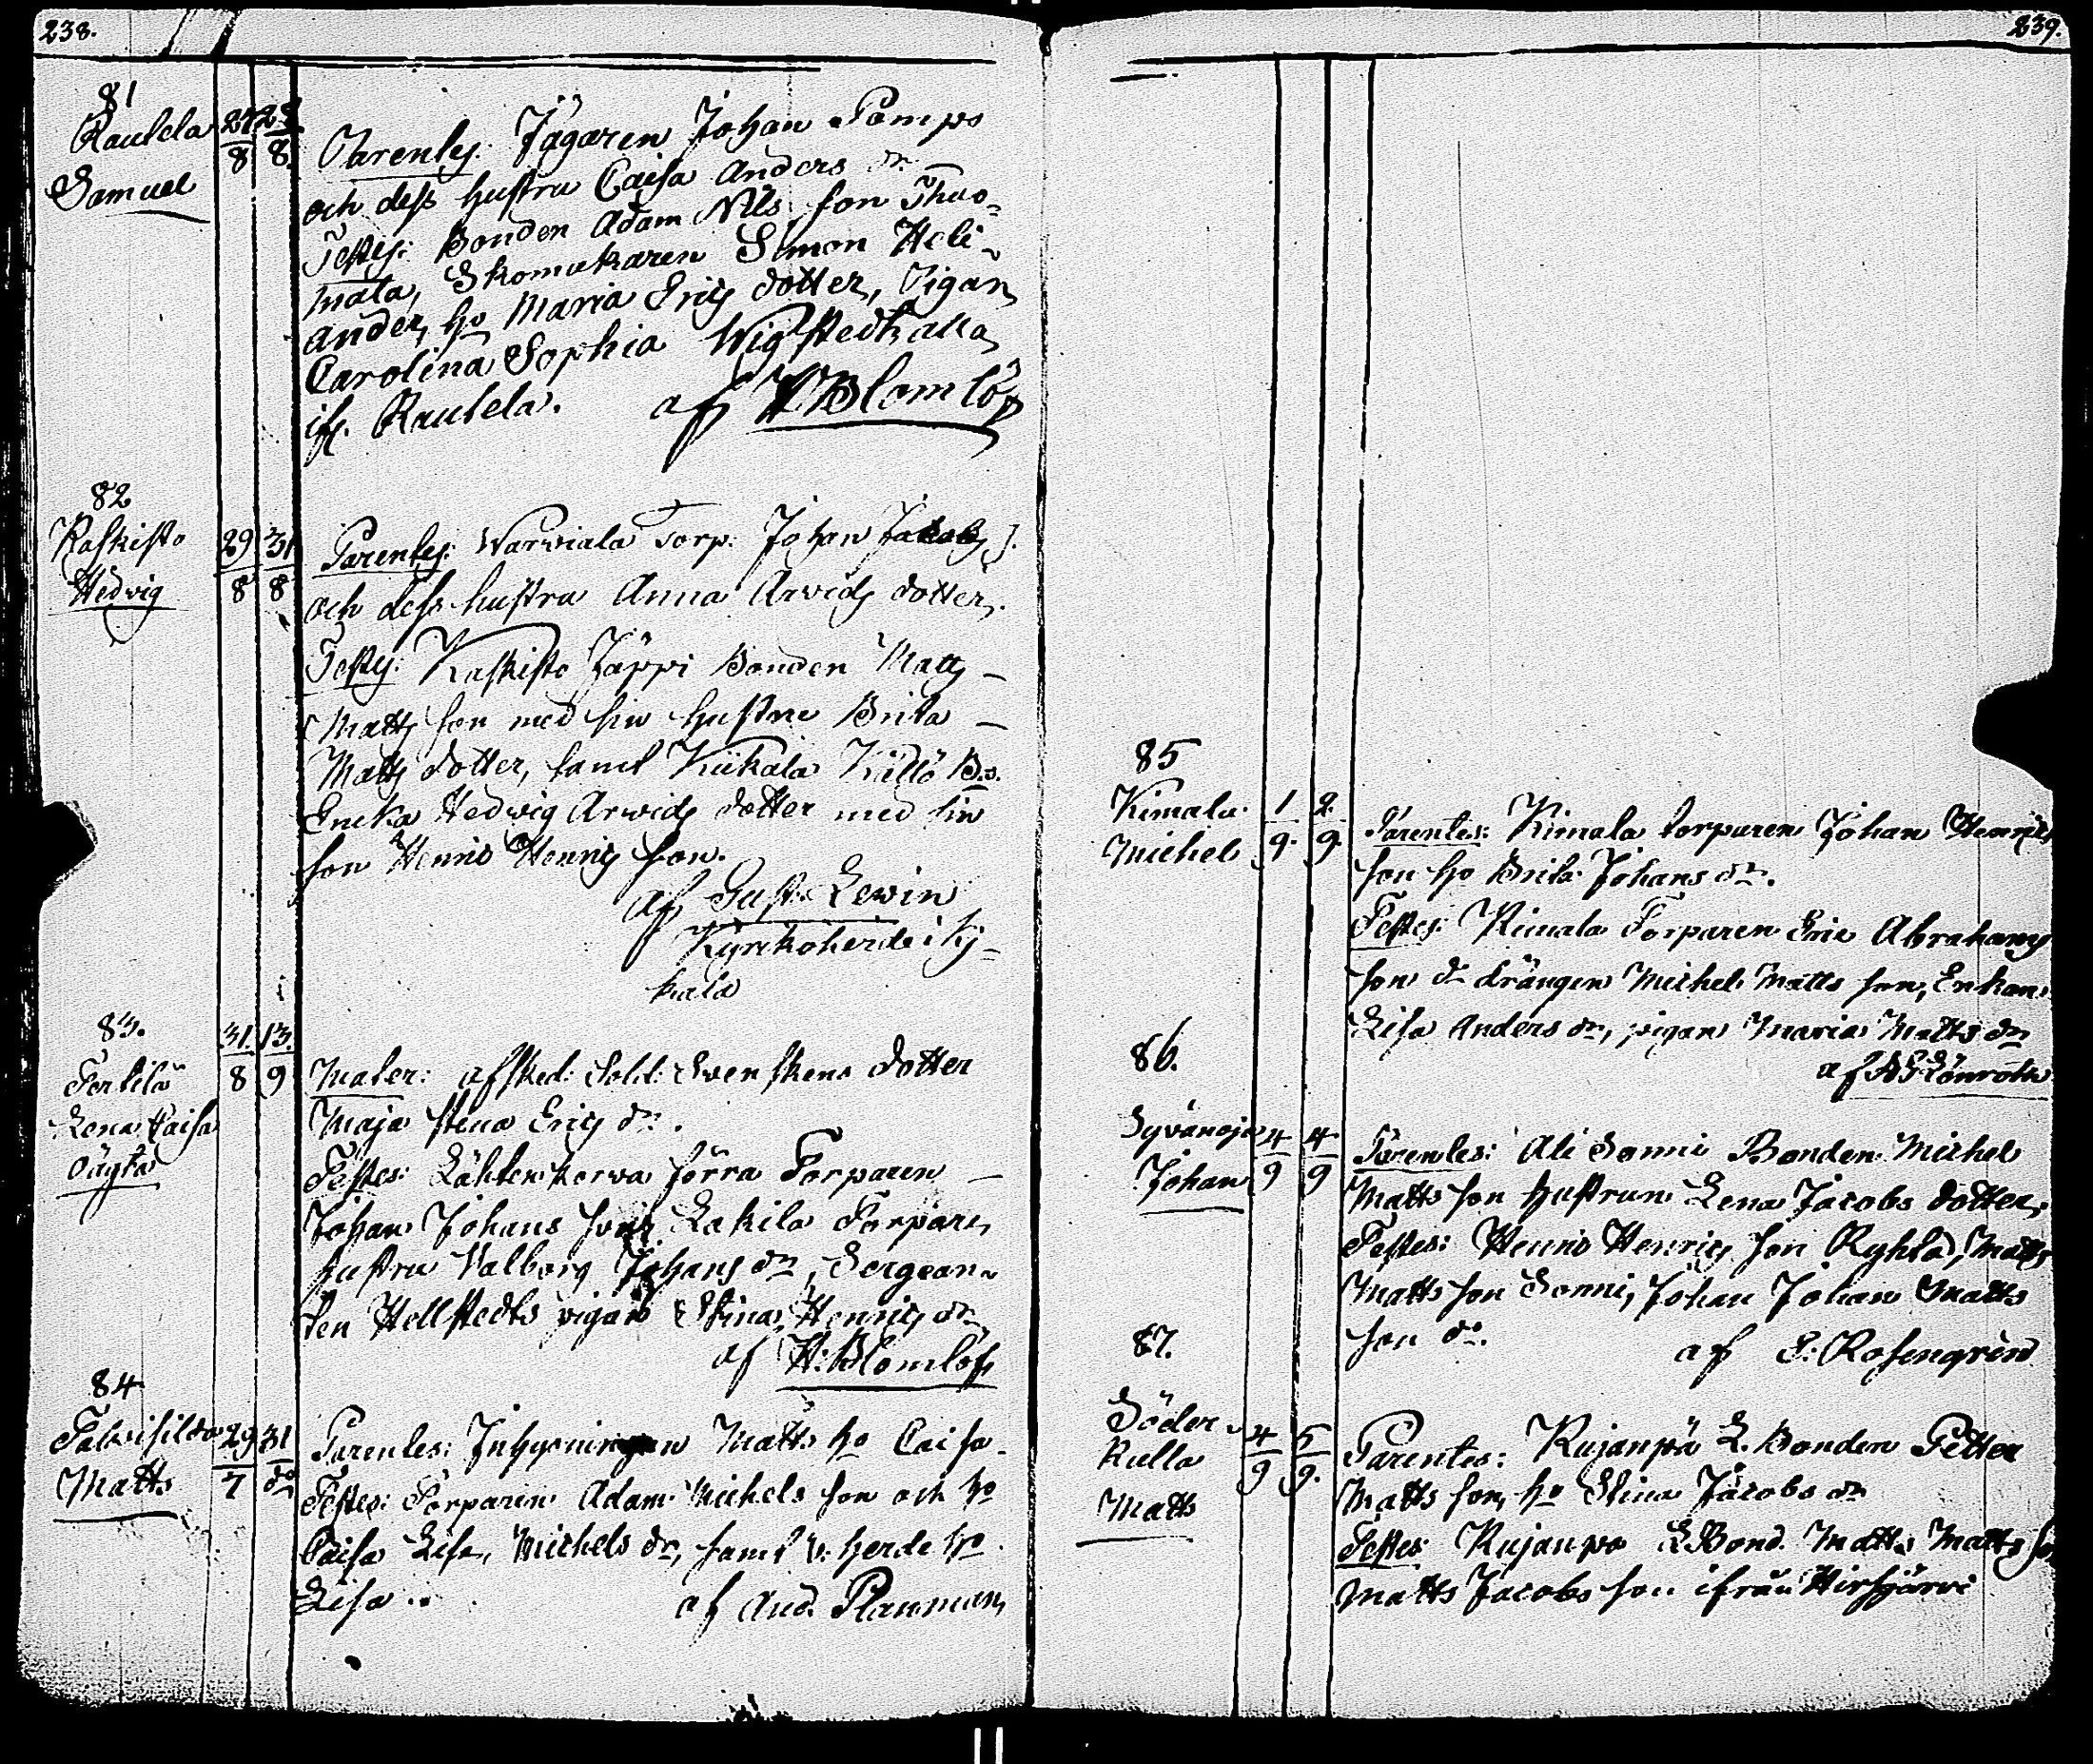 238.
81
Rautela 27 28
8 8.
Samuel
Parentes: Jägaren Johan Pamps
och dess hustru Caisa Anders dr.
Testes: Bonden Adam Nils son Thuo-
mala, Skomakaren Simon Heli-
ander, ho Maria Erics dotter, Pigan
Carolina Sophia Wigstedt alla
ifr. Rautela. af H Blomlöf
82
Kaskisto 29 31
Hedvig 8 8
Parentes: Warviala Torp. Johan Jacobs s.
och dess hustru Anna Arvids dotter.
Testes: Kaskisto Jäppi Bonden Matts
Matts son med sin hustru Brita
Matts dotter, samt Kiikala Killö B.
Ericka Hedwig Arwids dotter med sin
son Henric Henrics son.
af Gust. Lewin
Kyrckoherde i Ky-
kala
83. 31. 13.
Pertilä 8 9
Lena Caisa
oägta
Mater: afsked. Sold: Svenskens dotter
Maja Stina Erics dr.
Testes: Lähtenkorva förra Torparen
Johan Johans son, Lakila Torpare
hustru Valborg Johans dr, Sergean-
ten Hellstedts pigan Stina Henrics dr
af H: Blomlöf
84
29 31
Matts 7 do
Parentes: Inhysningen Matts ho Caisa
Testes: Torparen Adam Michels son och ho
Caisa Lisa, Michels dr, samt V. herde ho
Lisa .. af And. Planman
239.
85
Kimala 1 2.
Michel 9. 9.
Parentes: Kimala torparen Johan Henrics
son ho Brita Johans dr.
Testes: Kimala Torparen Eric Abrahams
son do drängen Michel Matts son, Enkan
Lisa Anders dr, pigan Maria Matts dr
af Lönroth
86.
Syvänoja 4 4
Johan 9 9
Parentes: Ali Sonni Bonden Michel
Matts son hustrun Lena Jacobs dotter,
Testes: Henric Henrics son Ryhtä, Matts
Matts son Sonni, Johan Johan Matts
son do. af E: Rosengrén
87.
Söder- 4 5
kulla 9 9.
Matts
Parentes: Kujanpä L. Bonden Petter
Matts son, ho Stina Jacobs dr
Testes: Kujanpä L Bond. Matts Matts son
Matts Jacobs son ifrån Hirsjärvi